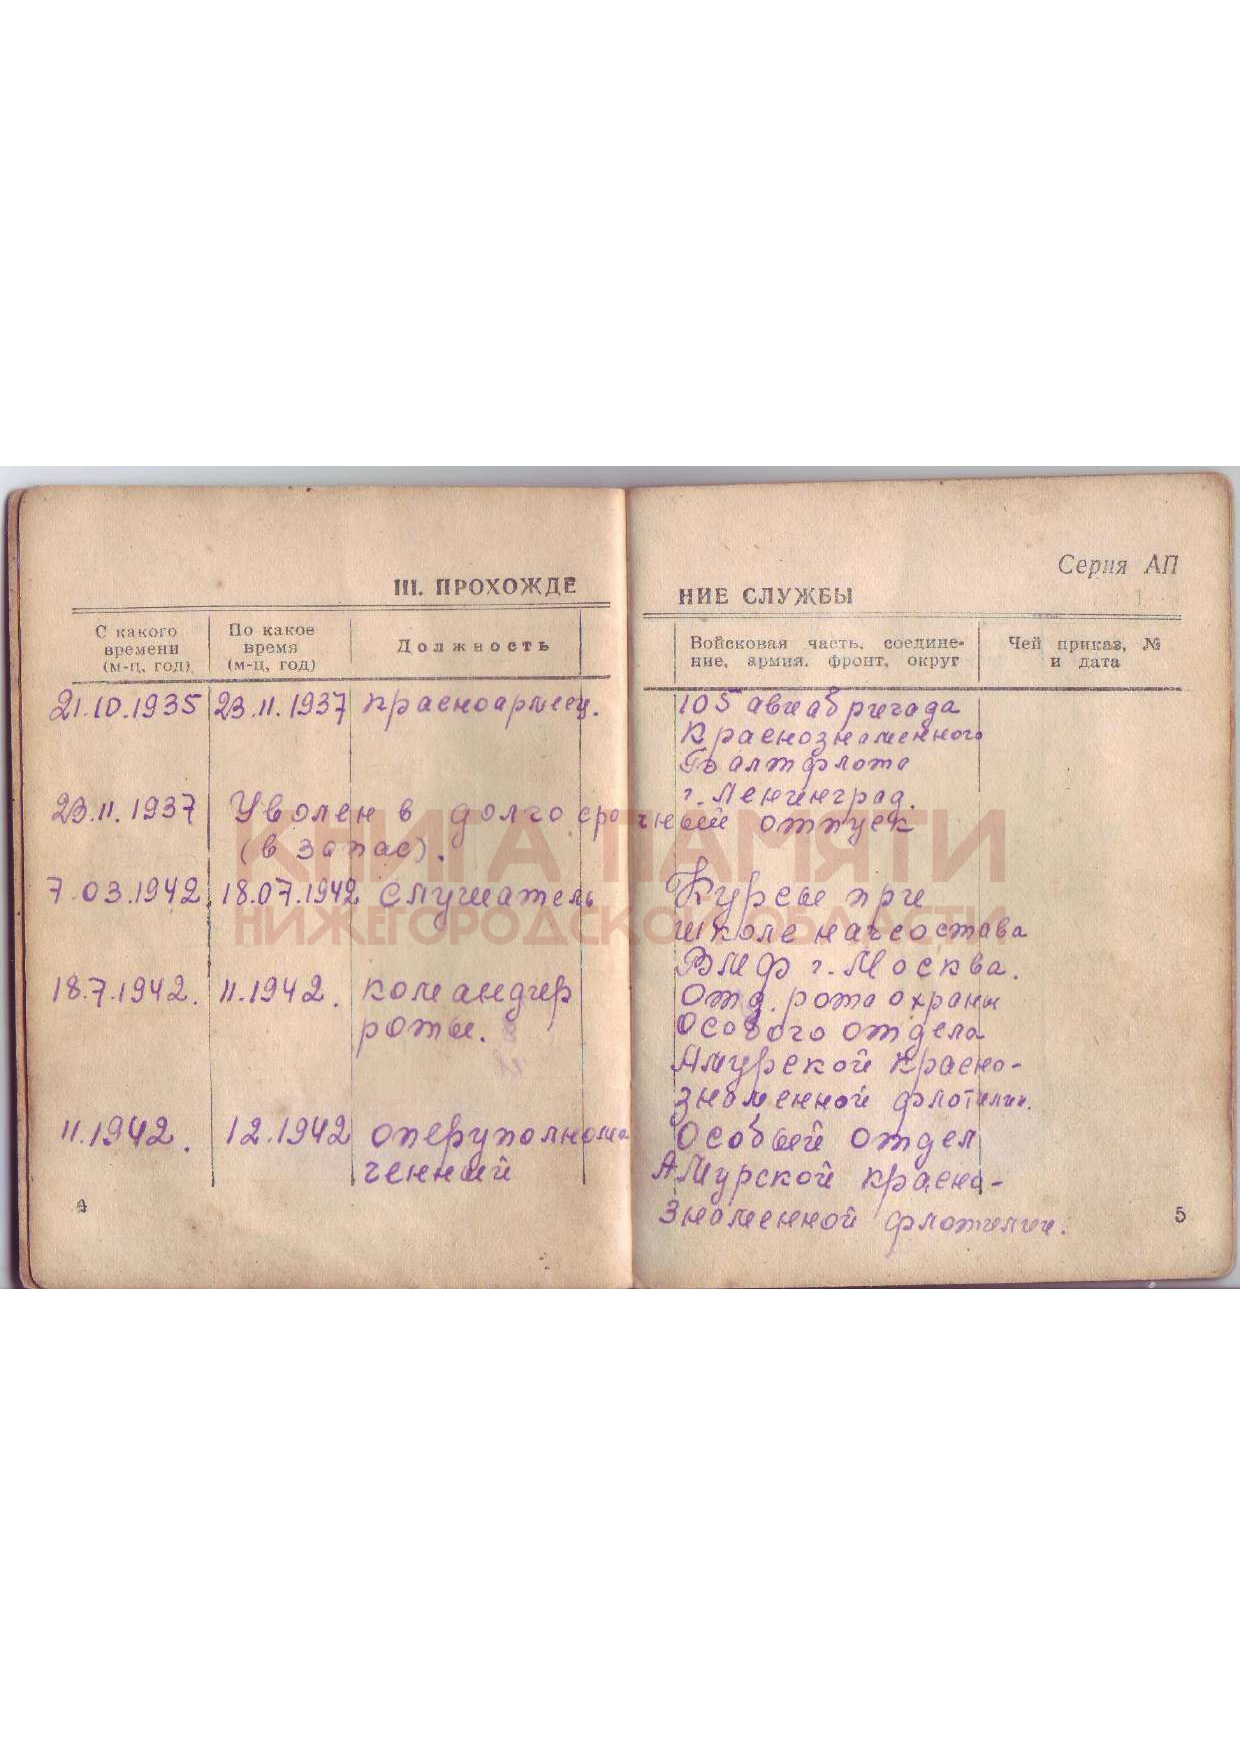 Серия АП
III. ПРОХОЖДЕ НИЕ СЛУЖБЫ
С какого времени (м-ц, год)
По какое время (м-ц, год)
Должность
Войсковая часть, соедине-
ние, армия, фронт, округ
Чей приказ, №
и дата
21.10.1935 23.11.1937 Красноармеец. 105 авиабригада
Краснознаменного
Балтфлота
г. Ленинград.
23.11.1937 Уволен в долгосрочный отпуск
(в запас).
7.03.1942 18.07.1942 слушатель Курсы при
школе начсостава
ВМФ г. Москва.
18.7.1942. 11.1942. командир Отд. рота охраны
роты. Особого отдела
Амурской Красно-
знаменной флотилии.
11.1942. 12.1942 оперуполнома Особый отдел
ченный Амурской красно-
знаменной флотилии.
4
5
КНИГА ПАМЯТИ
НИЖЕГОРОДСКОЙ ОБЛАСТИ